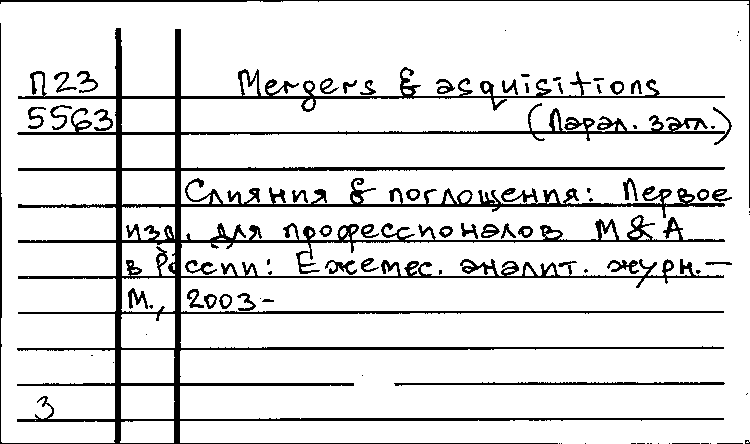 П23 Mergers & asquisitions
5563 (Парал. загл.)
Слияния & поглощения: Первое
изд. для профессионалов M & A
в России: Ежемес. аналит. журн. —
М., 2003-
3